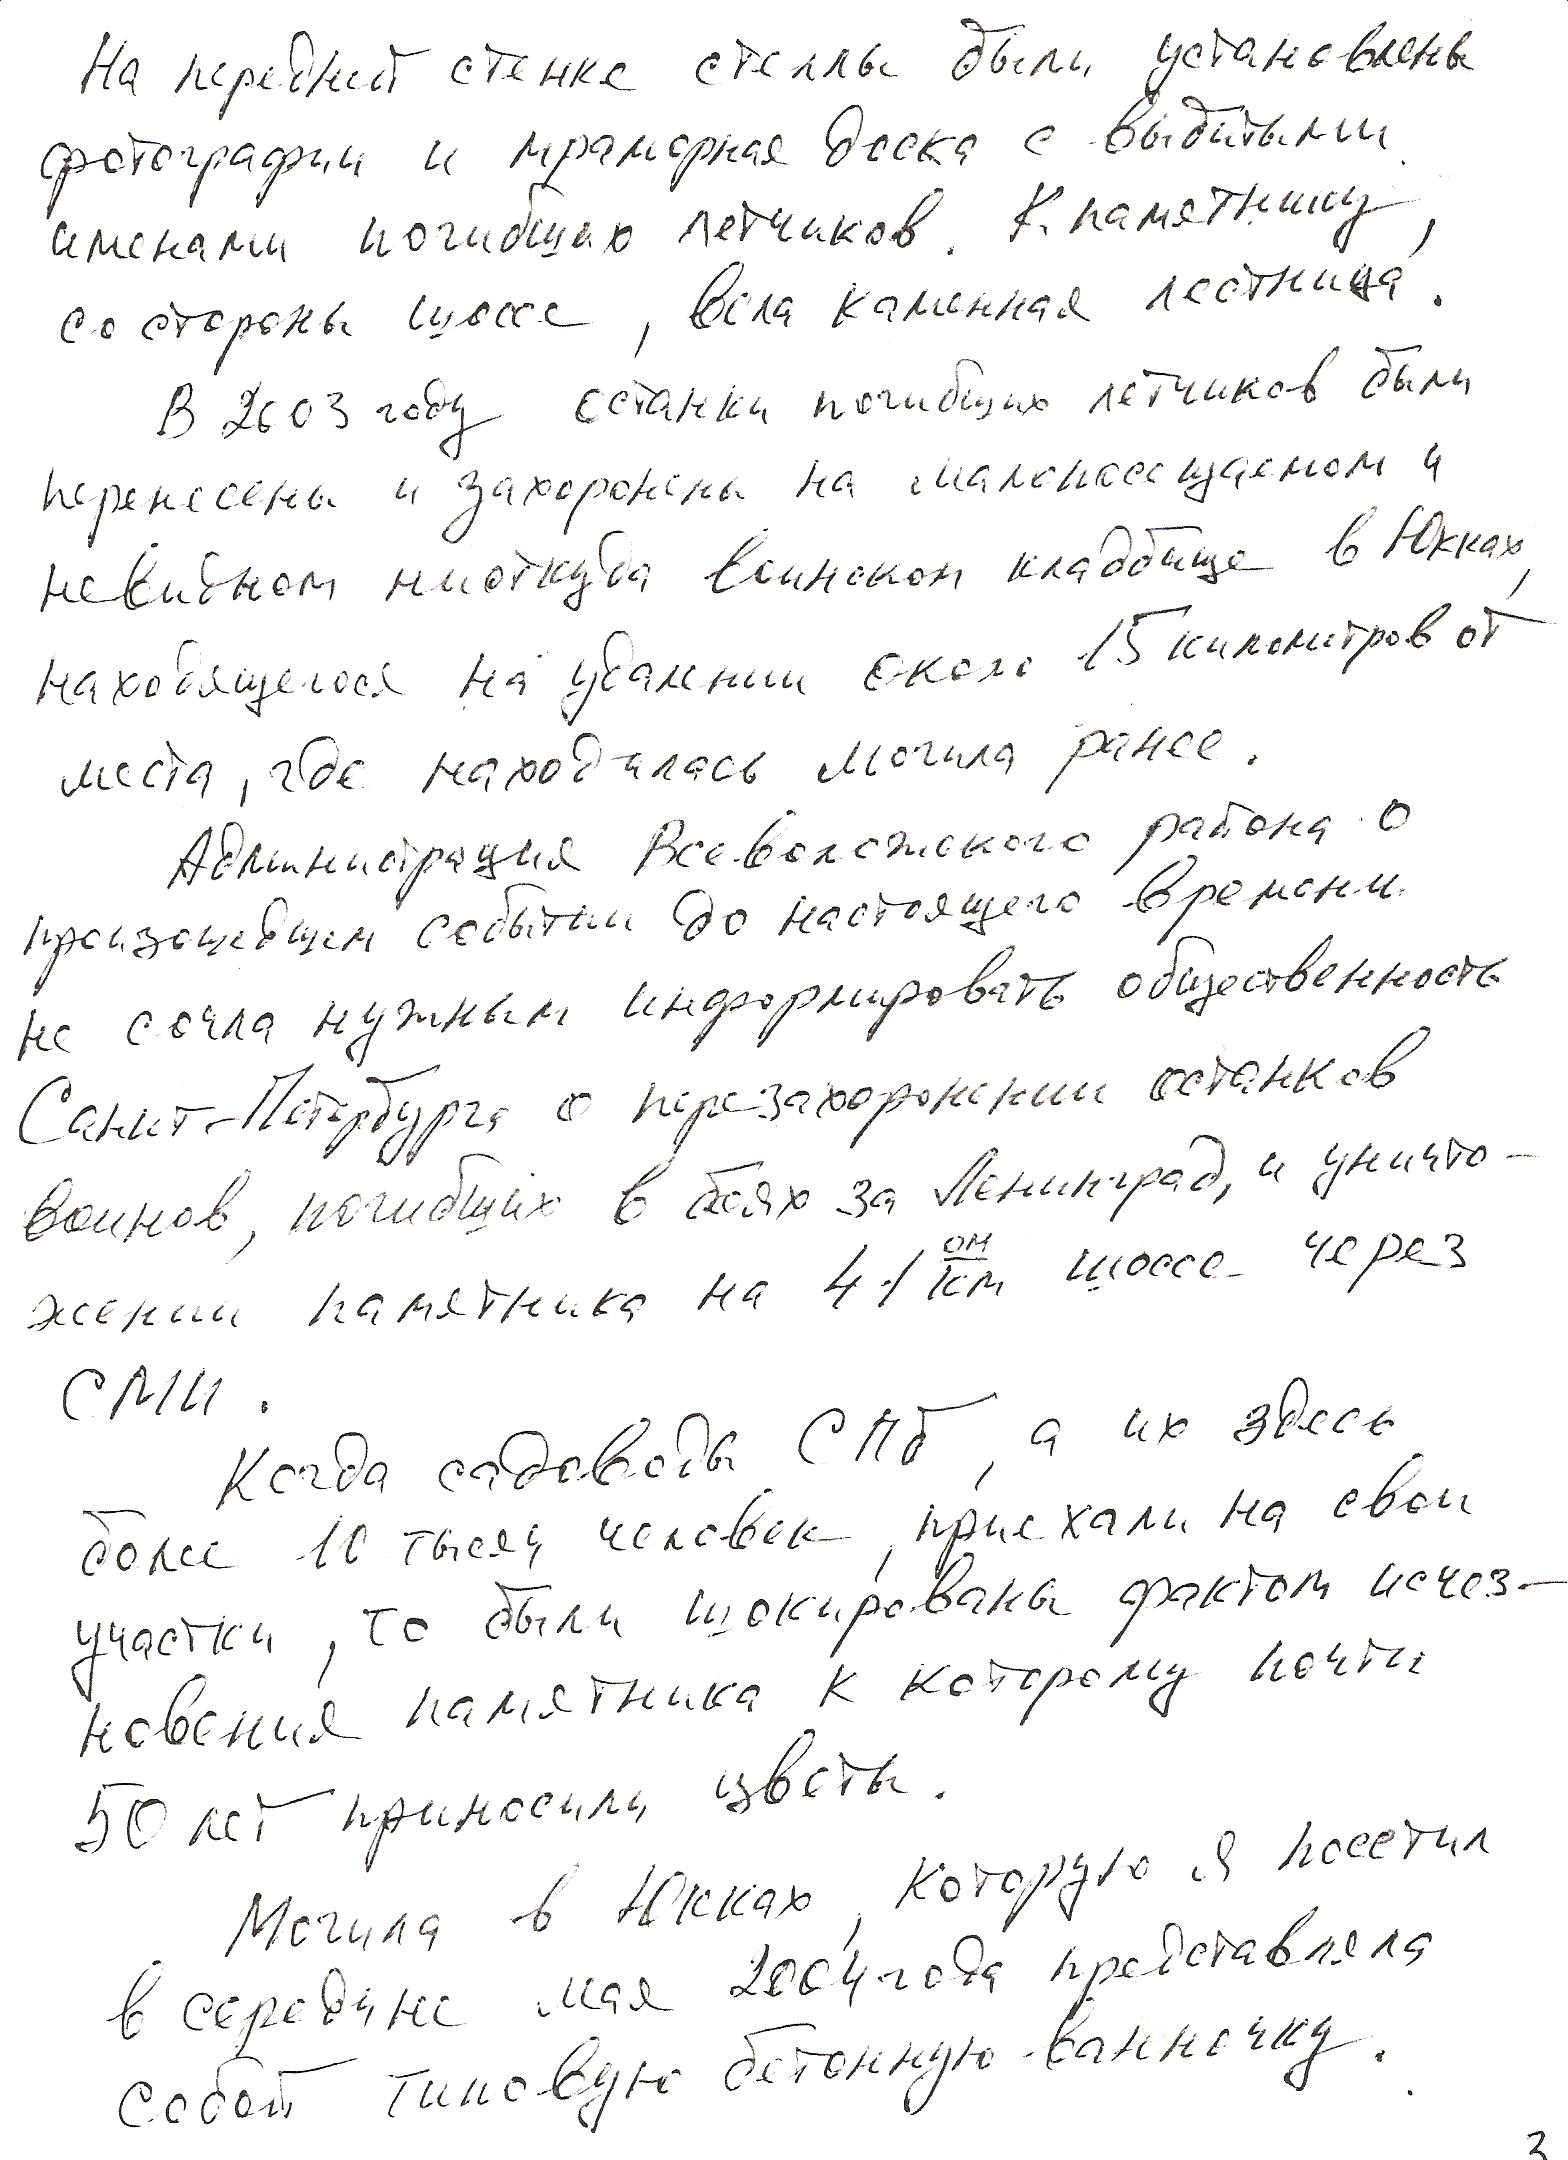 На передней стенке стеллы были установлены
фотографии и мраморная доска с выбитыми
именами погибших летчиков. К памятнику,
со стороны шоссе, вела каменная лестница.
В 2003 году останки погибших летчиков были
перенесены и захоронены на малопосещаемом и
невидном ниоткуда воинском кладбище в Юкках,
находящегося на удалении около 15 километров от
места, где находилась могила ранее.
Администрация Всеволожского района о
произошедшем событии до настоящего времени
не сочла нужным информировать общественность
Санкт-Петербурга о перезахоронении останков
воинов, погибших в боях за Ленинград, и уничто-
жении памятника на 41ом км шоссе через
СМИ.
Когда садоводы СПб, а их здесь
более 10 тысяч человек, приехали на свои
участки, то были шокированы фактом исчез-
новения памятника к которому почти
50 лет приносили цветы.
Могила в Юкках, которую я посетил
в середине мая 2004 года представляла
собой типовую бетонную ванночку.
3